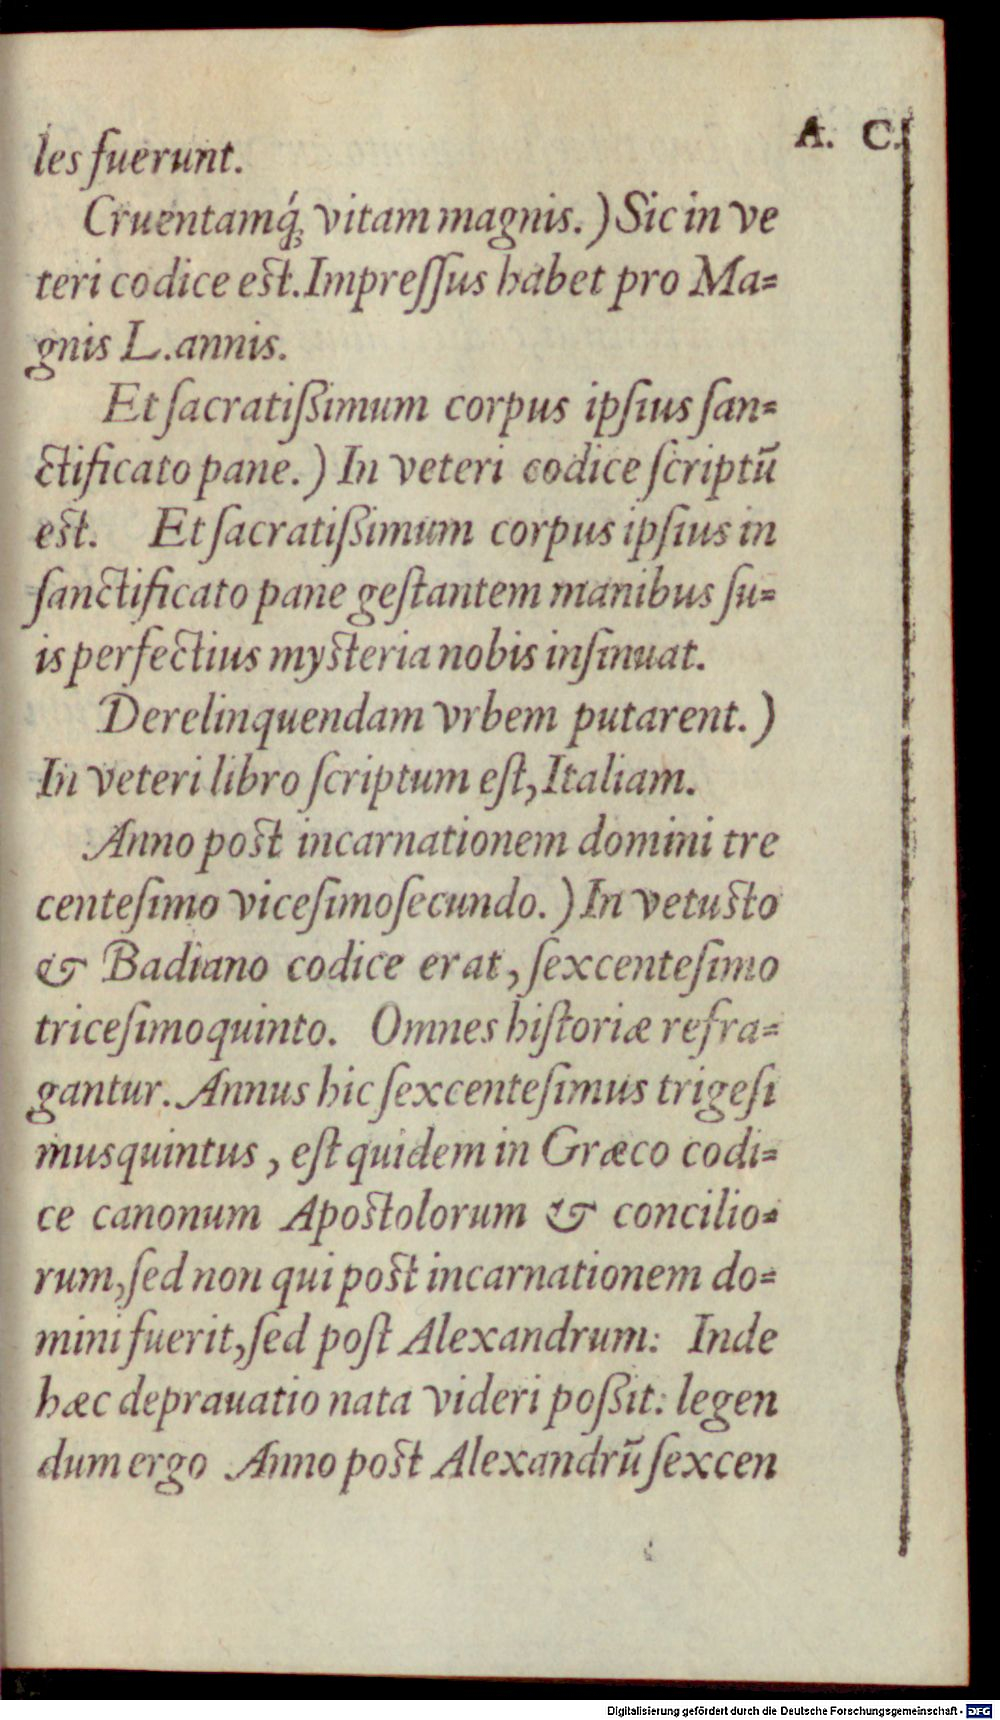 A. C.
les fuerunt.
Cruentamq́ꝫ vitam magnis.) Sic in ve
teri codice est. Impreſſus habet pro Ma=
gnis L. annis.
Et ſacratiſsimum corpus ipſius ſan=
ctificato pane.) In veteri codice ſcriptū
est. Et ſacratiſsimum corpus ipſius in
ſanctificato pane geſtantem manibus ſu=
is perfectius mysteria nobis inſinuat.
Derelinquendam vrbem putarent.)
In veteri libro ſcriptum eſt, Italiam.
Anno post incarnationem domini tre
centeſimo viceſimoſecundo.) In vetusto
& Badiano codice erat, ſexcenteſimo
triceſimoquinto. Omnes hiſtoriæ refra=
gantur. Annus hic ſexcenteſimus trigeſi
musquintus, eſt quidem in Græco codi=
ce canonum Apostolorum & concilio=
rum, ſed non qui post incarnationem do=
mini fuerit, ſed poſt Alexandrum: Inde
hæc deprauatio nata videri poſsit: legen
dum ergo Anno post Alexandrū ſexcen
Digitalisierung gefördert durch die Deutsche Forschungsgemeinschaft - DFG